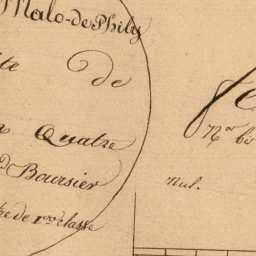 Malo-de-Phily
te de
n Quatre
d. Boursier
re de 1re classe
nul.